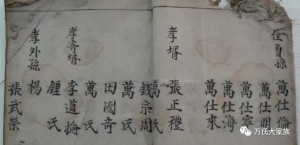 侄曾孫
萬仕倫
萬仕明
萬仕寧
萬仕海
萬仕來
孝婿
張正禮
萬氏
錢宗周
萬氏
田國奇
萬氏
孝奇婿
李道掄
鍾氏
孝外孫
楊
張武榮
万氏大家族